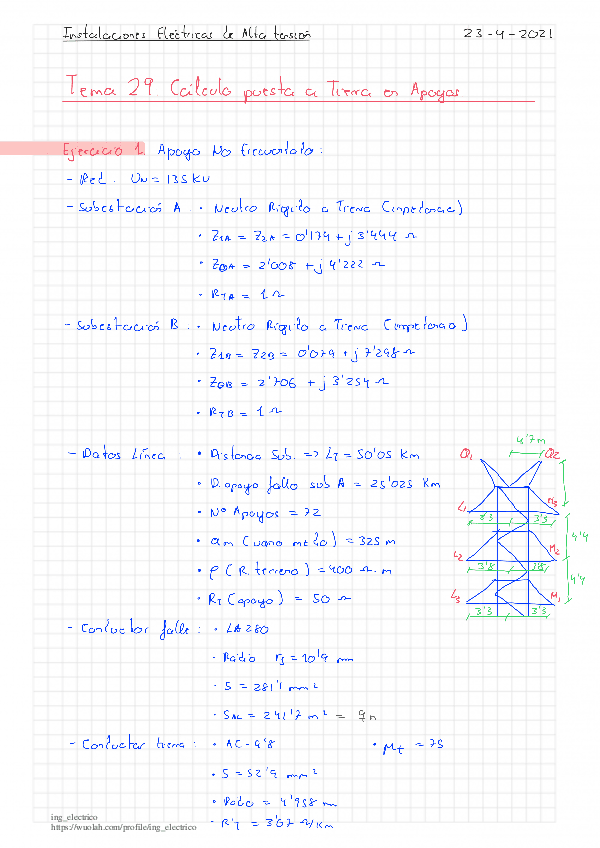 Instalaciones Eléctricas de Alta tensión 23-4-2021
Tema 29 Cálculo puesta a Tierra en Apoyos
Ejercicio 1 Apoyo No Frecuentado:
- Red. UN = 135 KV
- Subestación A . • Neutro Rígido a Tierra (impedancia)
• Z1A = Z2A = 0'174 + j 3'444 Ω
• Z0A = 2'008 + j 4'222 Ω
• RTA = 1 Ω
- Subestación B . • Neutro Rígido a Tierra (impedancia)
• Z1B = Z2B = 0'079 + j 7'298 Ω
• Z0B = 2'706 + j 3'254 Ω
• RTB = 1 Ω
- Datos Línea • Distancia Sub. => LT = 50'05 Km
• D. apoyo fallo sub A = 25'025 Km
• Nº Apoyos = 72
• am (vano medio) = 325 m
• ρ (R. terreno) = 400 Ω.m
• RT (apoyo) = 50 Ω
- Conductor fase : • LA 280
• Radio rf = 10'9 mm
• S = 281'1 mm²
• SAL = 241'7 m² =
- Conductor tierra : • AC-9'8 • μt = 75
• S = 52'9 mm²
• Radio = 4'958 mm
• R'T = 3'67 Ω/Km
4'7m
Q1 Q2
L1 M3
3'3 3'3
4'4
L2 M2
3'8 3'8
4'4
L3 M1
3'3 3'3
ing_electrico
https://wuolah.com/profile/ing_electrico